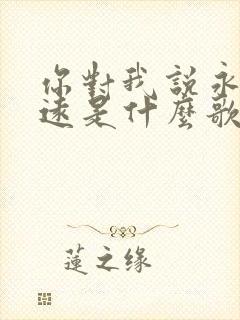 你對我說永
遠是什麼歌
蓮之缘